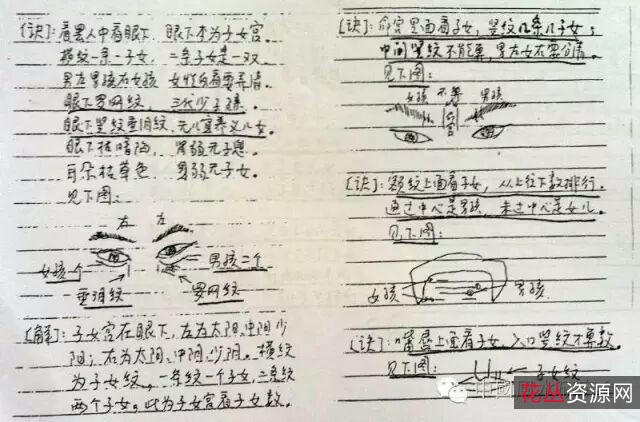 [诀]：看罢人中看眼下，眼下本为子女宫。
横纹一条一子女，二条子女是一双
男左男孩右女孩 女性反看要弄清
眼下罗网纹，三代少子孫。
眼下竖纹垂泪纹，无儿宜养义儿女。
眼下枯暗陷 男弱无子息。
耳朵枯草色 男弱无子女。
见下图：
右 左
女孩一个
男孩二个
垂泪纹
罗网纹
[解]：子女宫在眼下，左为太阳，中阳少
阳；右为太阴、中阴、少阴。横纹
为子女纹。一条纹一个子女，二条纹
两个子女。此为子女宫看子女数。
[诀]：命宫里面看子女，竖纹几条几子女；
中间竖纹不能算，男左女右要分清。
见下图：
女孩 不算 男孩
命宫
[诀]：颏纹上面看子女，从上往下数排行。
通过中心是男孩，未过中心是女儿。
见下图：
女孩
男孩
[诀]：嘴唇上面看子女，入口竖纹不算数。
见下图：
子女纹
花丛资源网